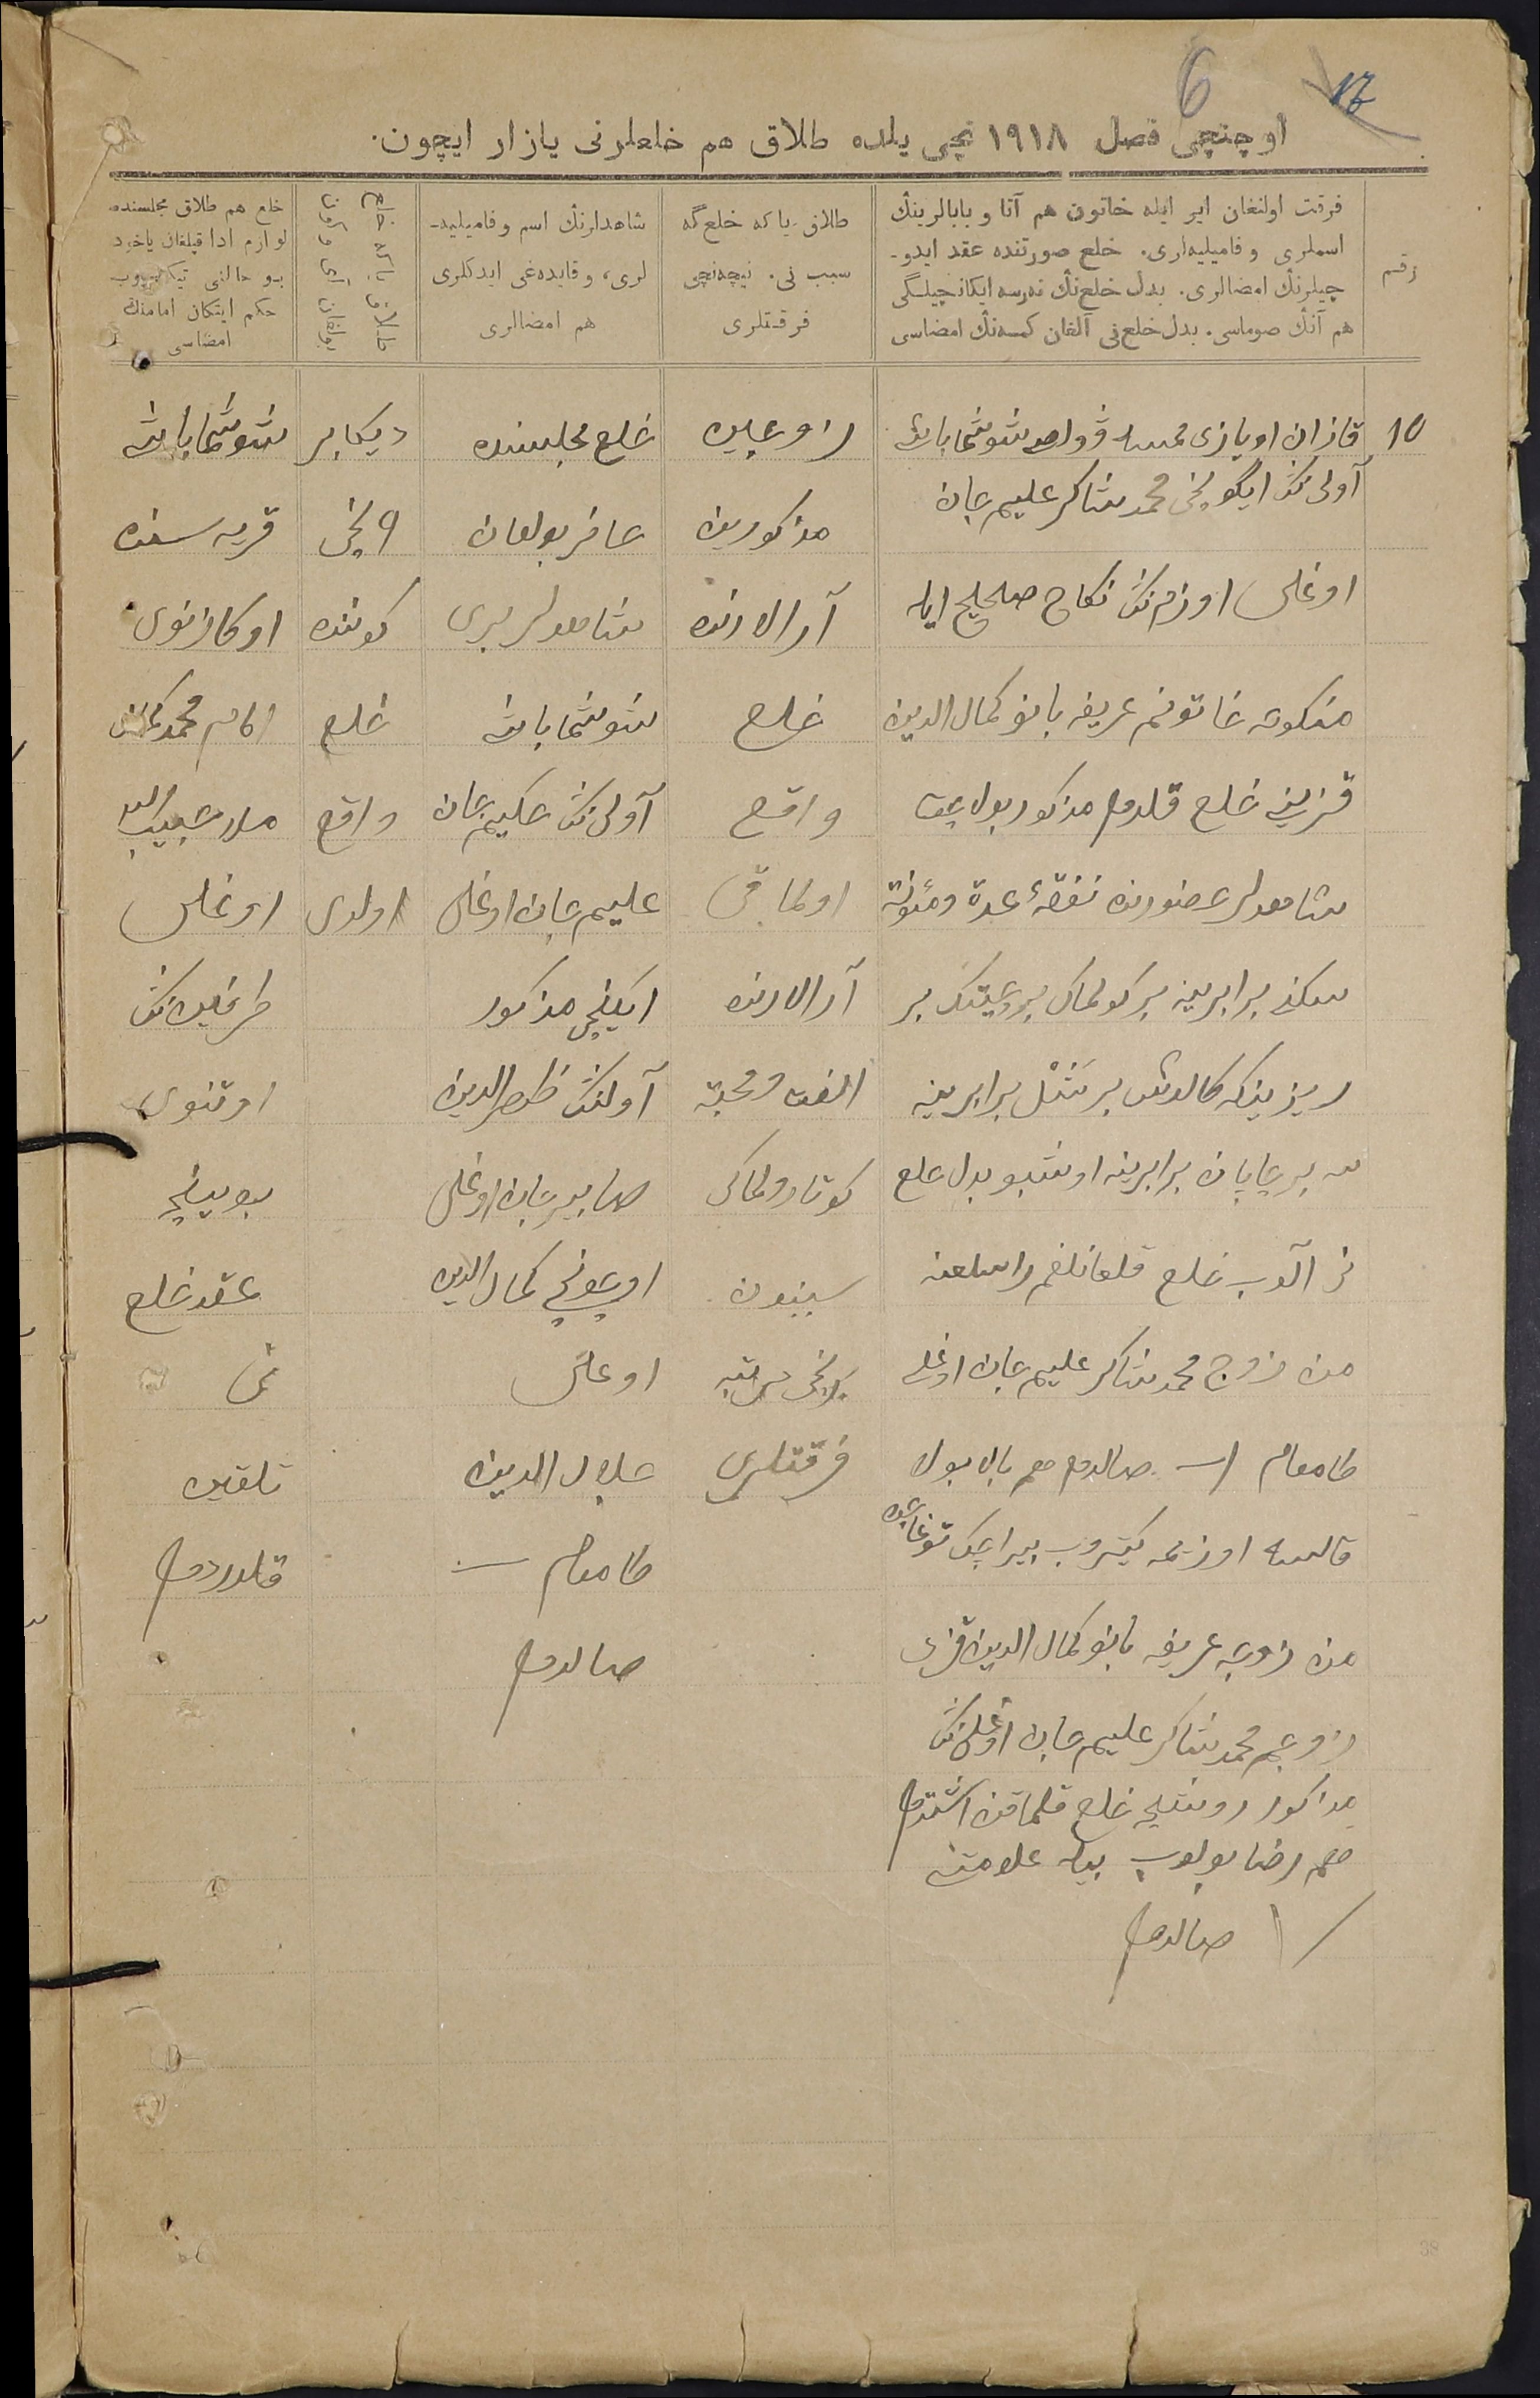 6
اوچنچی فصل ١٩١٨ نچی یلده طلاق هم خلعلرنی یازار ایچون.
رقم
فرقت اولنغان ایر ایله خاتون هم آتا و بابالرینڭ
اسملری و فامیلیه‌لری. خلع صورتنده عقد ایدو-
چیلرنڭ امضالری. بدل خلع نڭ نه‌رسه ایکانچیلگی
هم آنڭ صوماسی. بدل خلع نی آلغان کمسه‌نڭ امضاسی
طلاق-یا که خلع گه
سبب نی. نیچه‌نچی
فرقتلری
شاهدلرنڭ اسم و فامیلیه-
لری، و قایده‌غی ایدکلری
هم امضالری
خلع هم طلاق مجلسنده
لوازم ادا قیلغان یاخود
بو حالنی تیکشروب
حکم ایتکان امامنڭ
امضاسی
١٥
قازان اویازی شوشماباش
آولی نڭ ایگونچی محمد شاکر علیم جان
اوغلی اوزم نڭ نکاح صحیح ایله
منکوحه خاتونم عریفه بانو کمال الدین
قزین خلع قلدم مذکور بولاچق
شاهدلر حضورنده نفقهٔ عدة و مئونة
سکنی برابرینه بر کولماک بر چیتک بر
ریزینکه کالوش بر شل برابرینه
بر چاپان برابرینه اوشبو بدل خلع
نی آلوب خلع
من زوج محمد شاکر علیم جان اوغلی
طامغام صالدم هم بالا بولا
قالسه اوزیمه کیتروب بیراچک توغاچده
من زوجه عریفه بانو کمال الدین قزی
زوجم محمد شاکر علیم جان اوغلی نڭ
مذکور روشلی خلع قلماقن اشتدم
هم رضا بولوب بیله علامتنه
صالدم
زوجین
مذکورین
آرالارنده
خلع
واقع
اولماقی
آرالارنده
الفت و محبة
کوتارولماکی
سببندن
برنچی مرتبه
فرقتلری
خلع مجلسنده
حاضر بولغان
شاهدلر بری
شوشماباش
آولی نڭ حکیم جان
علیم جان اوغلی
ایکنچی مذکور
آولنڭ ظهر الدین
صابر جان اوغلی
اوچونچی کمال الدین
اوغلی
جلال الدین
طامغام
صالدم
دیکابر
٩ نچی
کوننده
خلع
واقع
اولدی
شوشماباش
قریه سنده
اوکازنوی
امام محمد
ملا حبیب الله
اوغلی
طرفلرین نڭ
اوتنوی
بوینچه
عقد خلع
نی
تلقین
قلدردم